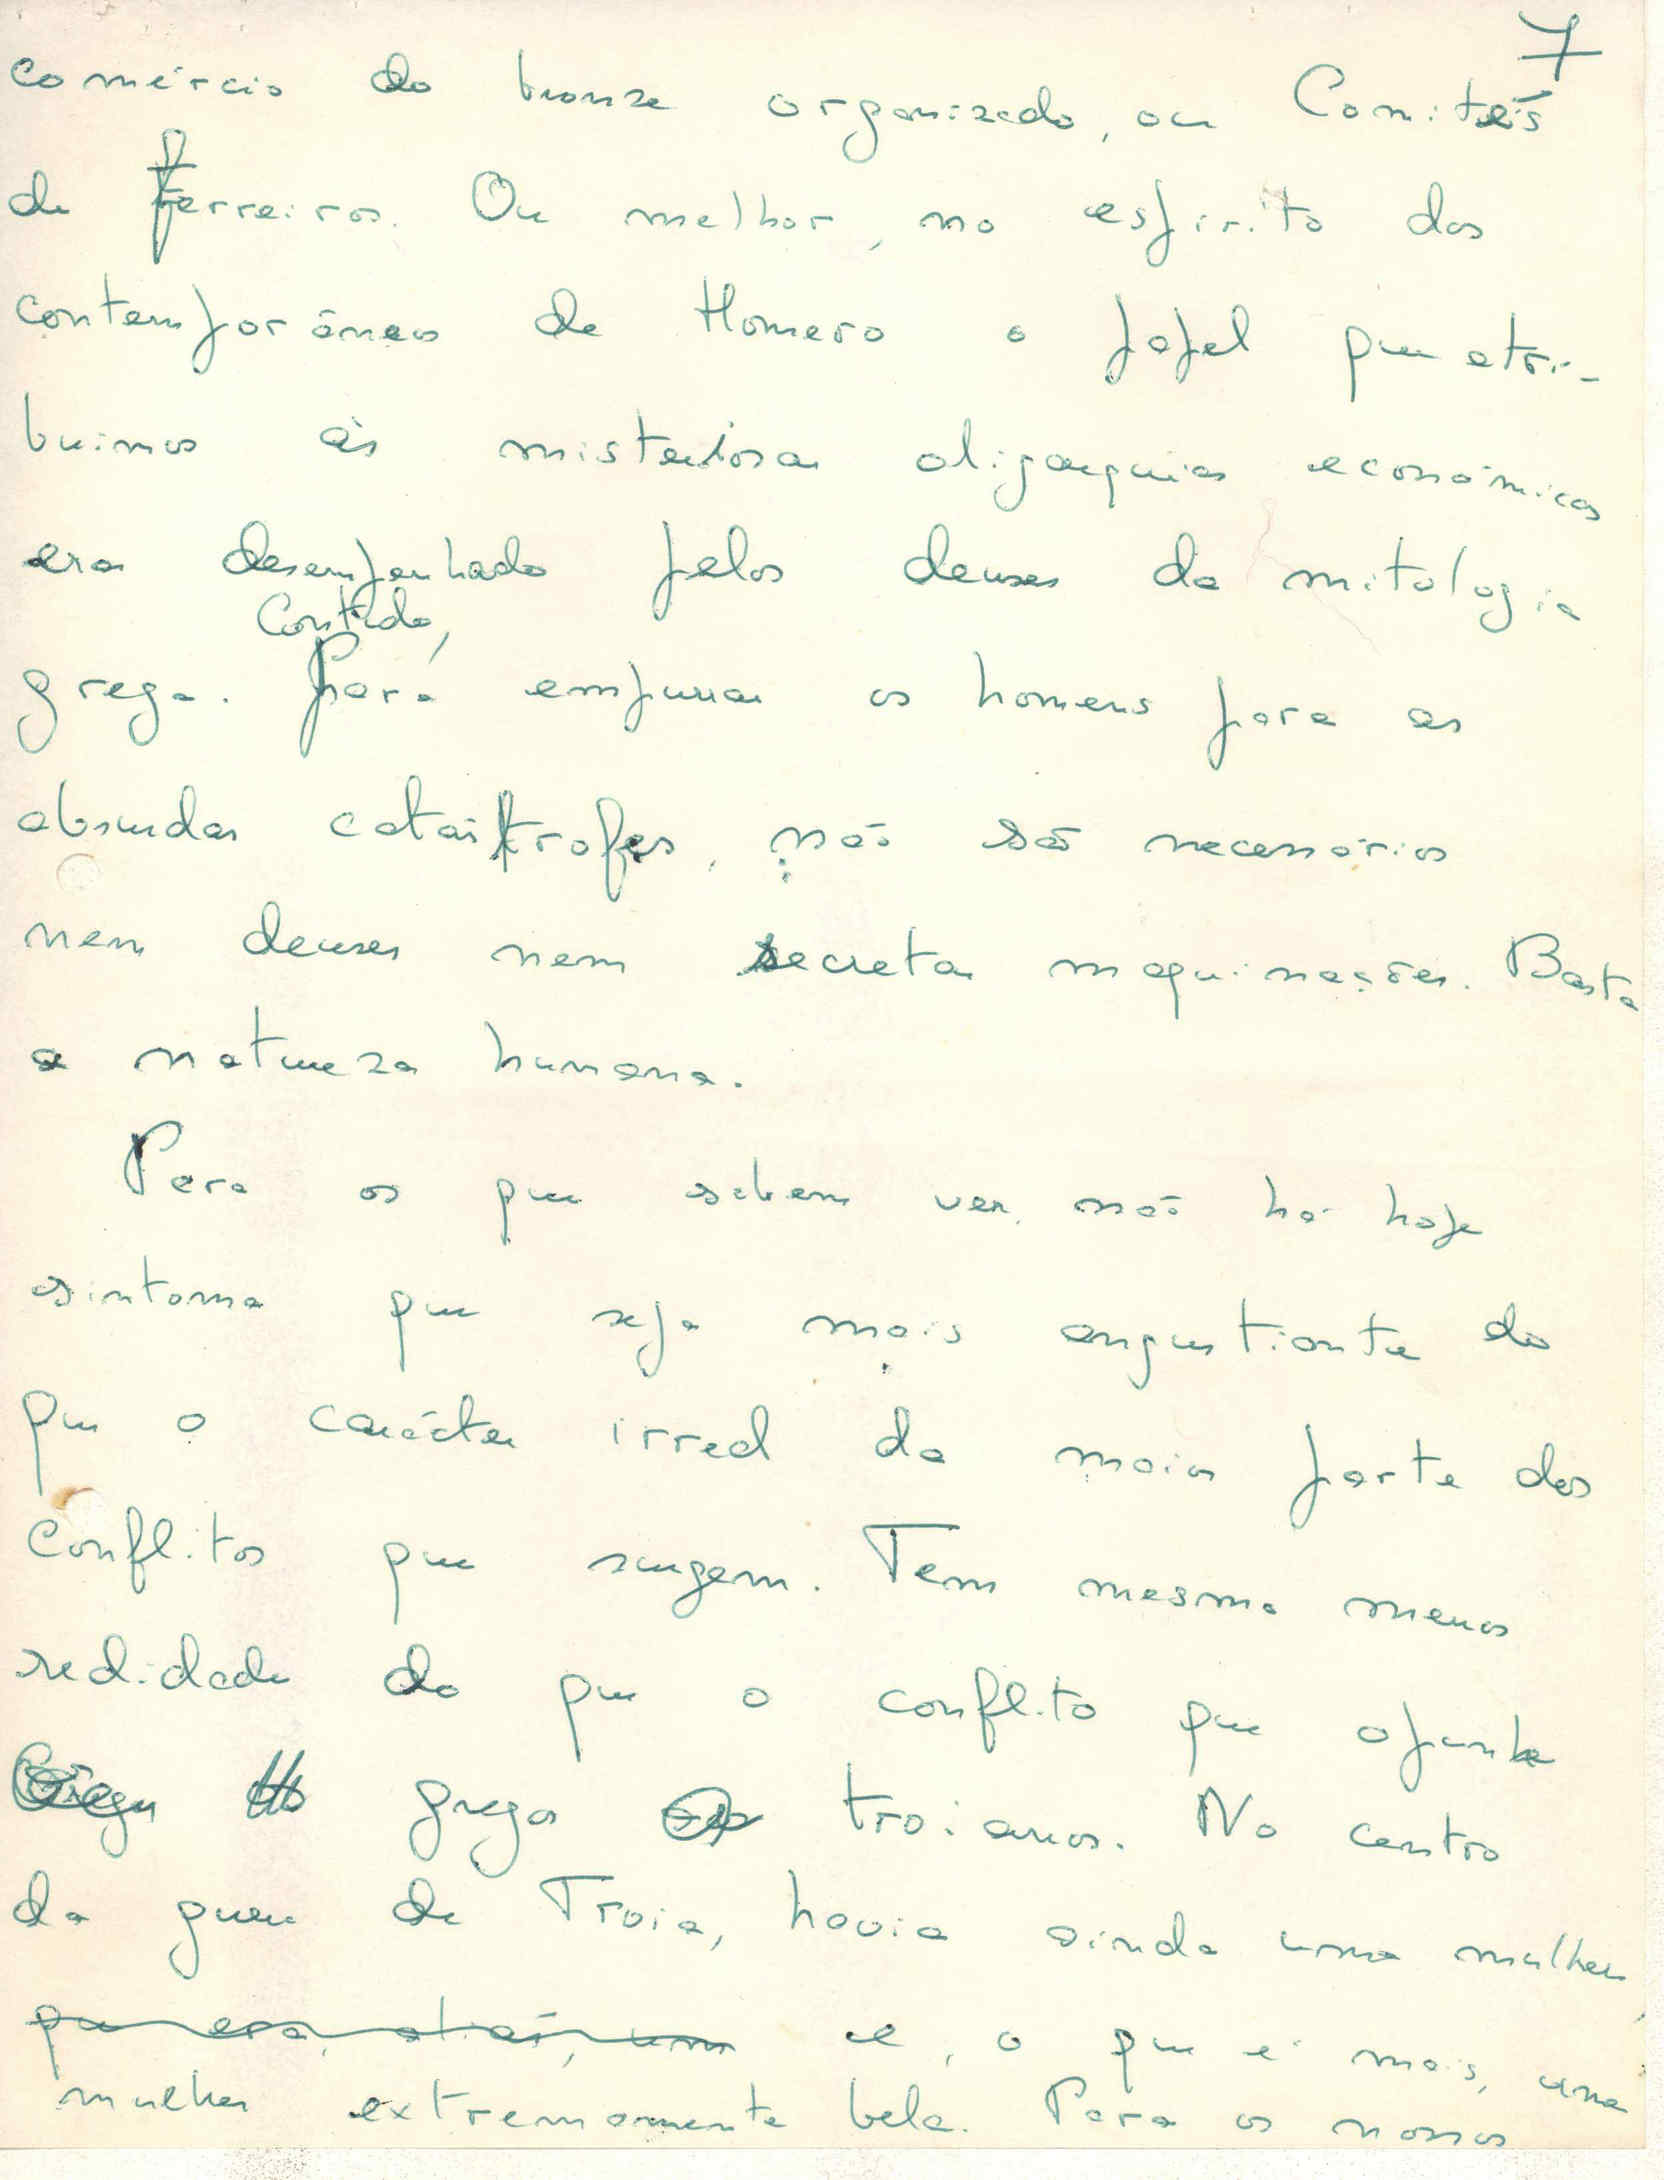 7
comércio do bronze organizado, ou Comités
de Ferreiros. Ou melhor, no espírito dos
contemporâneos de Homero o papel que atri-
buimos às misteriosas oligarquias económicas
era desempenhado pelos deuses da mitologia
Contudo,
grega. Para empurrar os homens para as
absurdas catástrofes, não são necessários
nem deuses nem secretas maquinações. Basta
a natureza humana.
Para os que sabem ver, não há hoje
sintoma que seja mais angustiante do
que o carácter irreal da maior parte dos
conflitos que surgem. Tem mesmo menos
realidade do que o conflito que opunha
gregos troianos. No centro
da guerra de Troia, havia ainda uma mulher,
que era, aliás, uma e, o que é mais, uma
mulher extremamente bela. Para os nossos